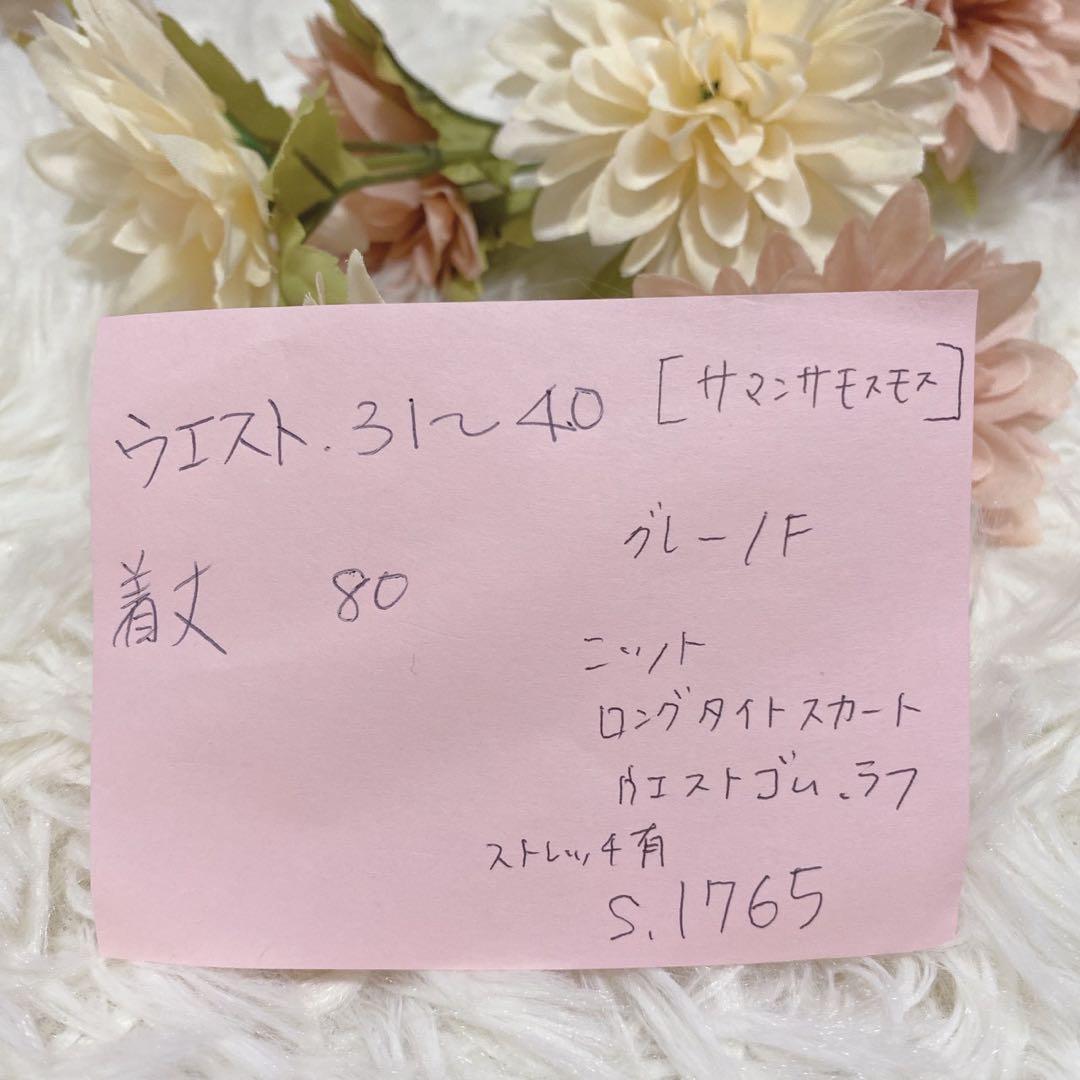 [サマンサモスモス]
ウエスト.31～40
グレー/F
着丈 80
ニット
ロングタイトスカート
ウエストゴム.ラフ
ストレッチ有
S.1765